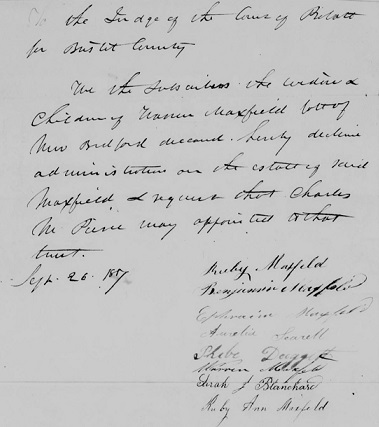 To the Judge of the Court of Probate
for Bristol County
We the subscribers the widow &
Children of Warren Maxfield late of
New Bedford deceased hereby decline
administration on the estate of said
Maxfield & request that Charles
M. Pierce may appointed to that
trust.
Sept. 26.
Ruby Maxfield
Benjamin Maxfield
Ephraim Maxfield
Aurelia Searell
Phebe Daggett
Warren Maxfield
Sarah J Blanchard
Ruby Ann Maxfield